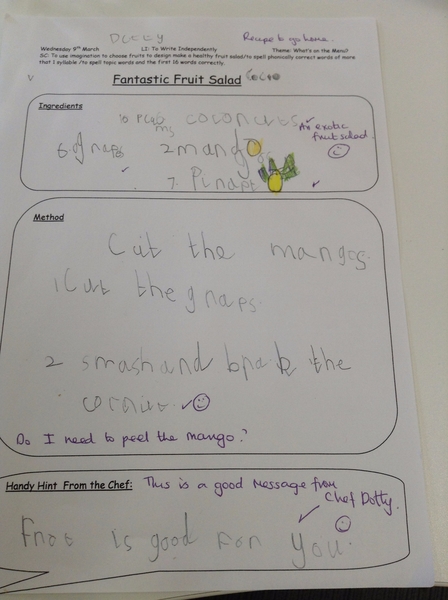 Dotty
Recipe to go home.
Wednesday 9th March LI: To Write Independently Theme: What's on the Menu?
SC: To use imagination to choose fruits to design make a healthy fruit salad/to spell phonically correct words of more
that 1 syllable /to spell topic words and the first 16 words correctly.
Fantastic Fruit Salad
Ingredients
10 coconuts
An exotic
fruit salad.
6 gnaps 2 mango
7. Pinapl
Method
Cut the mangos.
1 Cut the gnaps.
2 smash and bpak the
Do I need to peel the mango?
Handy Hint From the Chef: This is a good message from
Chef Dotty.
Fnoo is good For you.